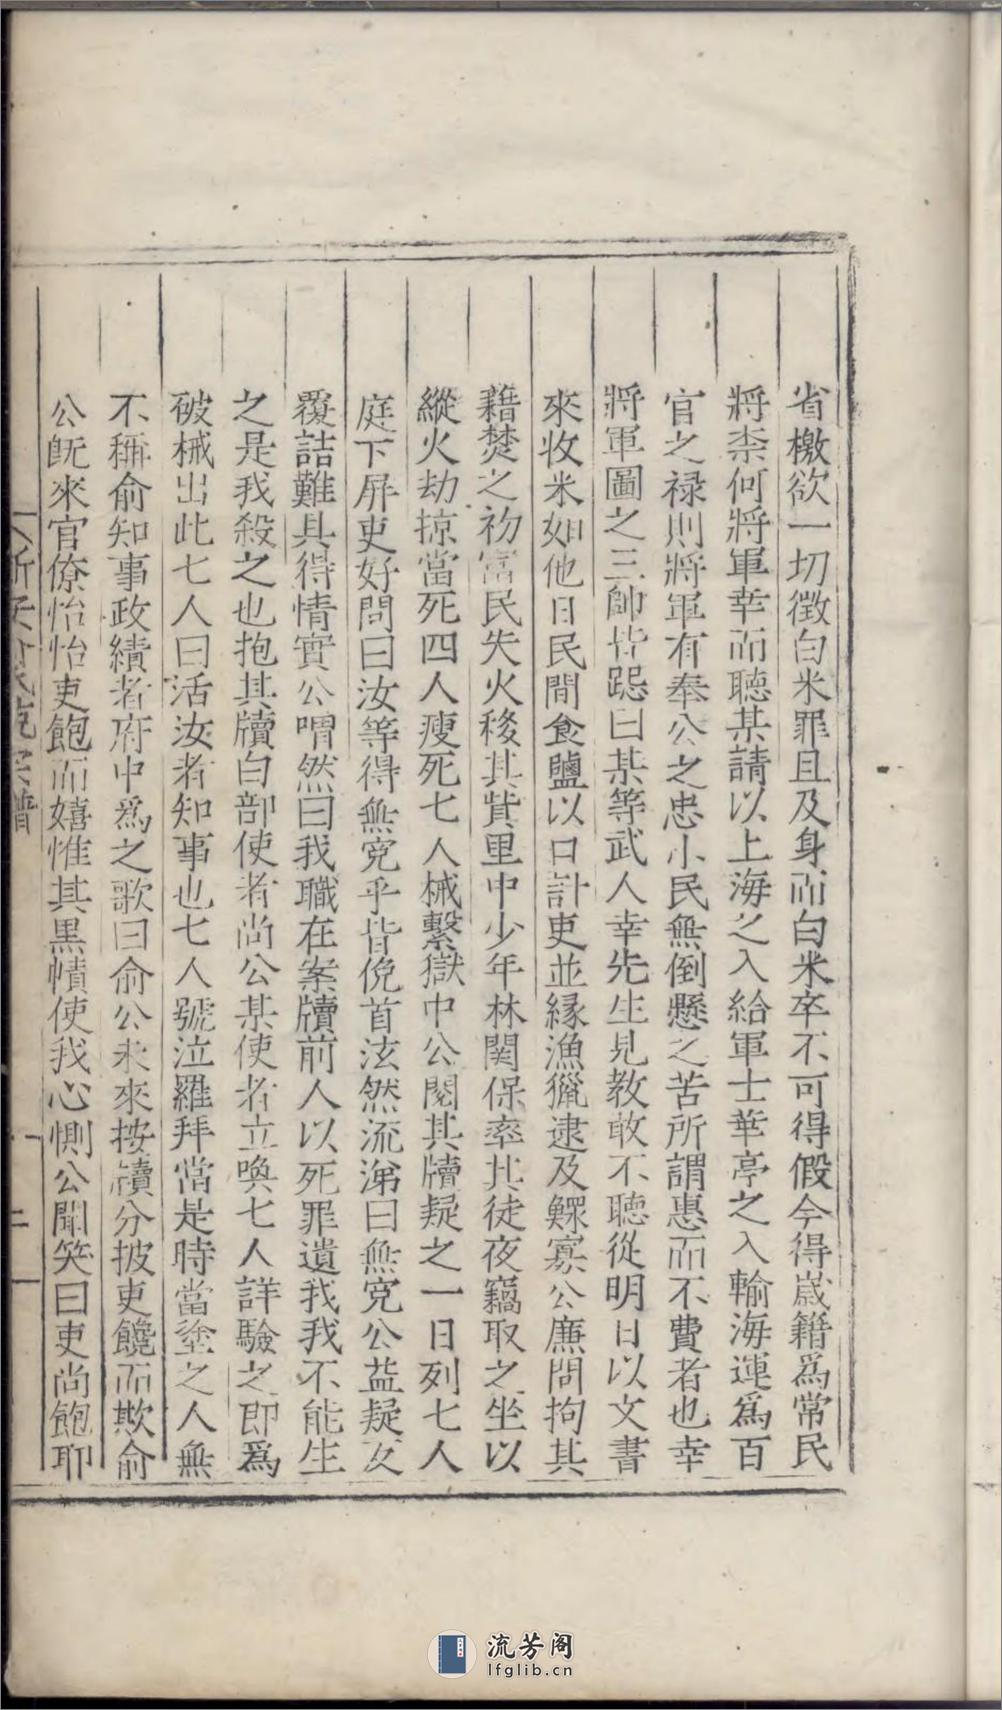 省檄欲一切徵白米罪且及身而白米卒不可得假令得嵗籍爲常民
將柰何將軍幸而聽某請以上海之入給軍士華亭之入輸海運爲百
官之禄則將軍有奉公之忠小民無倒懸之苦所謂惠而不費者也幸
將軍圖之三帥皆跽曰某等武人幸先生見教敢不聽從明日以文書
來收米如他日民間食鹽以口計吏並縁漁獵逮及鰥寡公廉問拘其
籍焚之初富民失火移其貲里中少年林関保率其徒夜竊取之坐以
縱火劫掠當死四人瘦死七人械繫獄中公閱其牘疑之一日列七人
庭下屏吏好問曰汝等得無寃乎皆俛首泫然流涕曰無寃公益疑反
覆詰難具得情實公喟然曰我職在案牘前人以死罪遺我我不能生
之是我殺之也抱其牘白部使者尚公某使者立喚七人詳驗之即爲
破械出此七人曰活汝者知事也七人號泣羅拜當是時當塗之人無
不稱俞知事政績者府中爲之歌曰俞公未來按牘分披吏饞而欺俞
公旣來官僚怡怡吏飽而嬉惟其黒幘使我心惻公聞笑曰吏尚飽耶
流芳阁
lfglib.cn